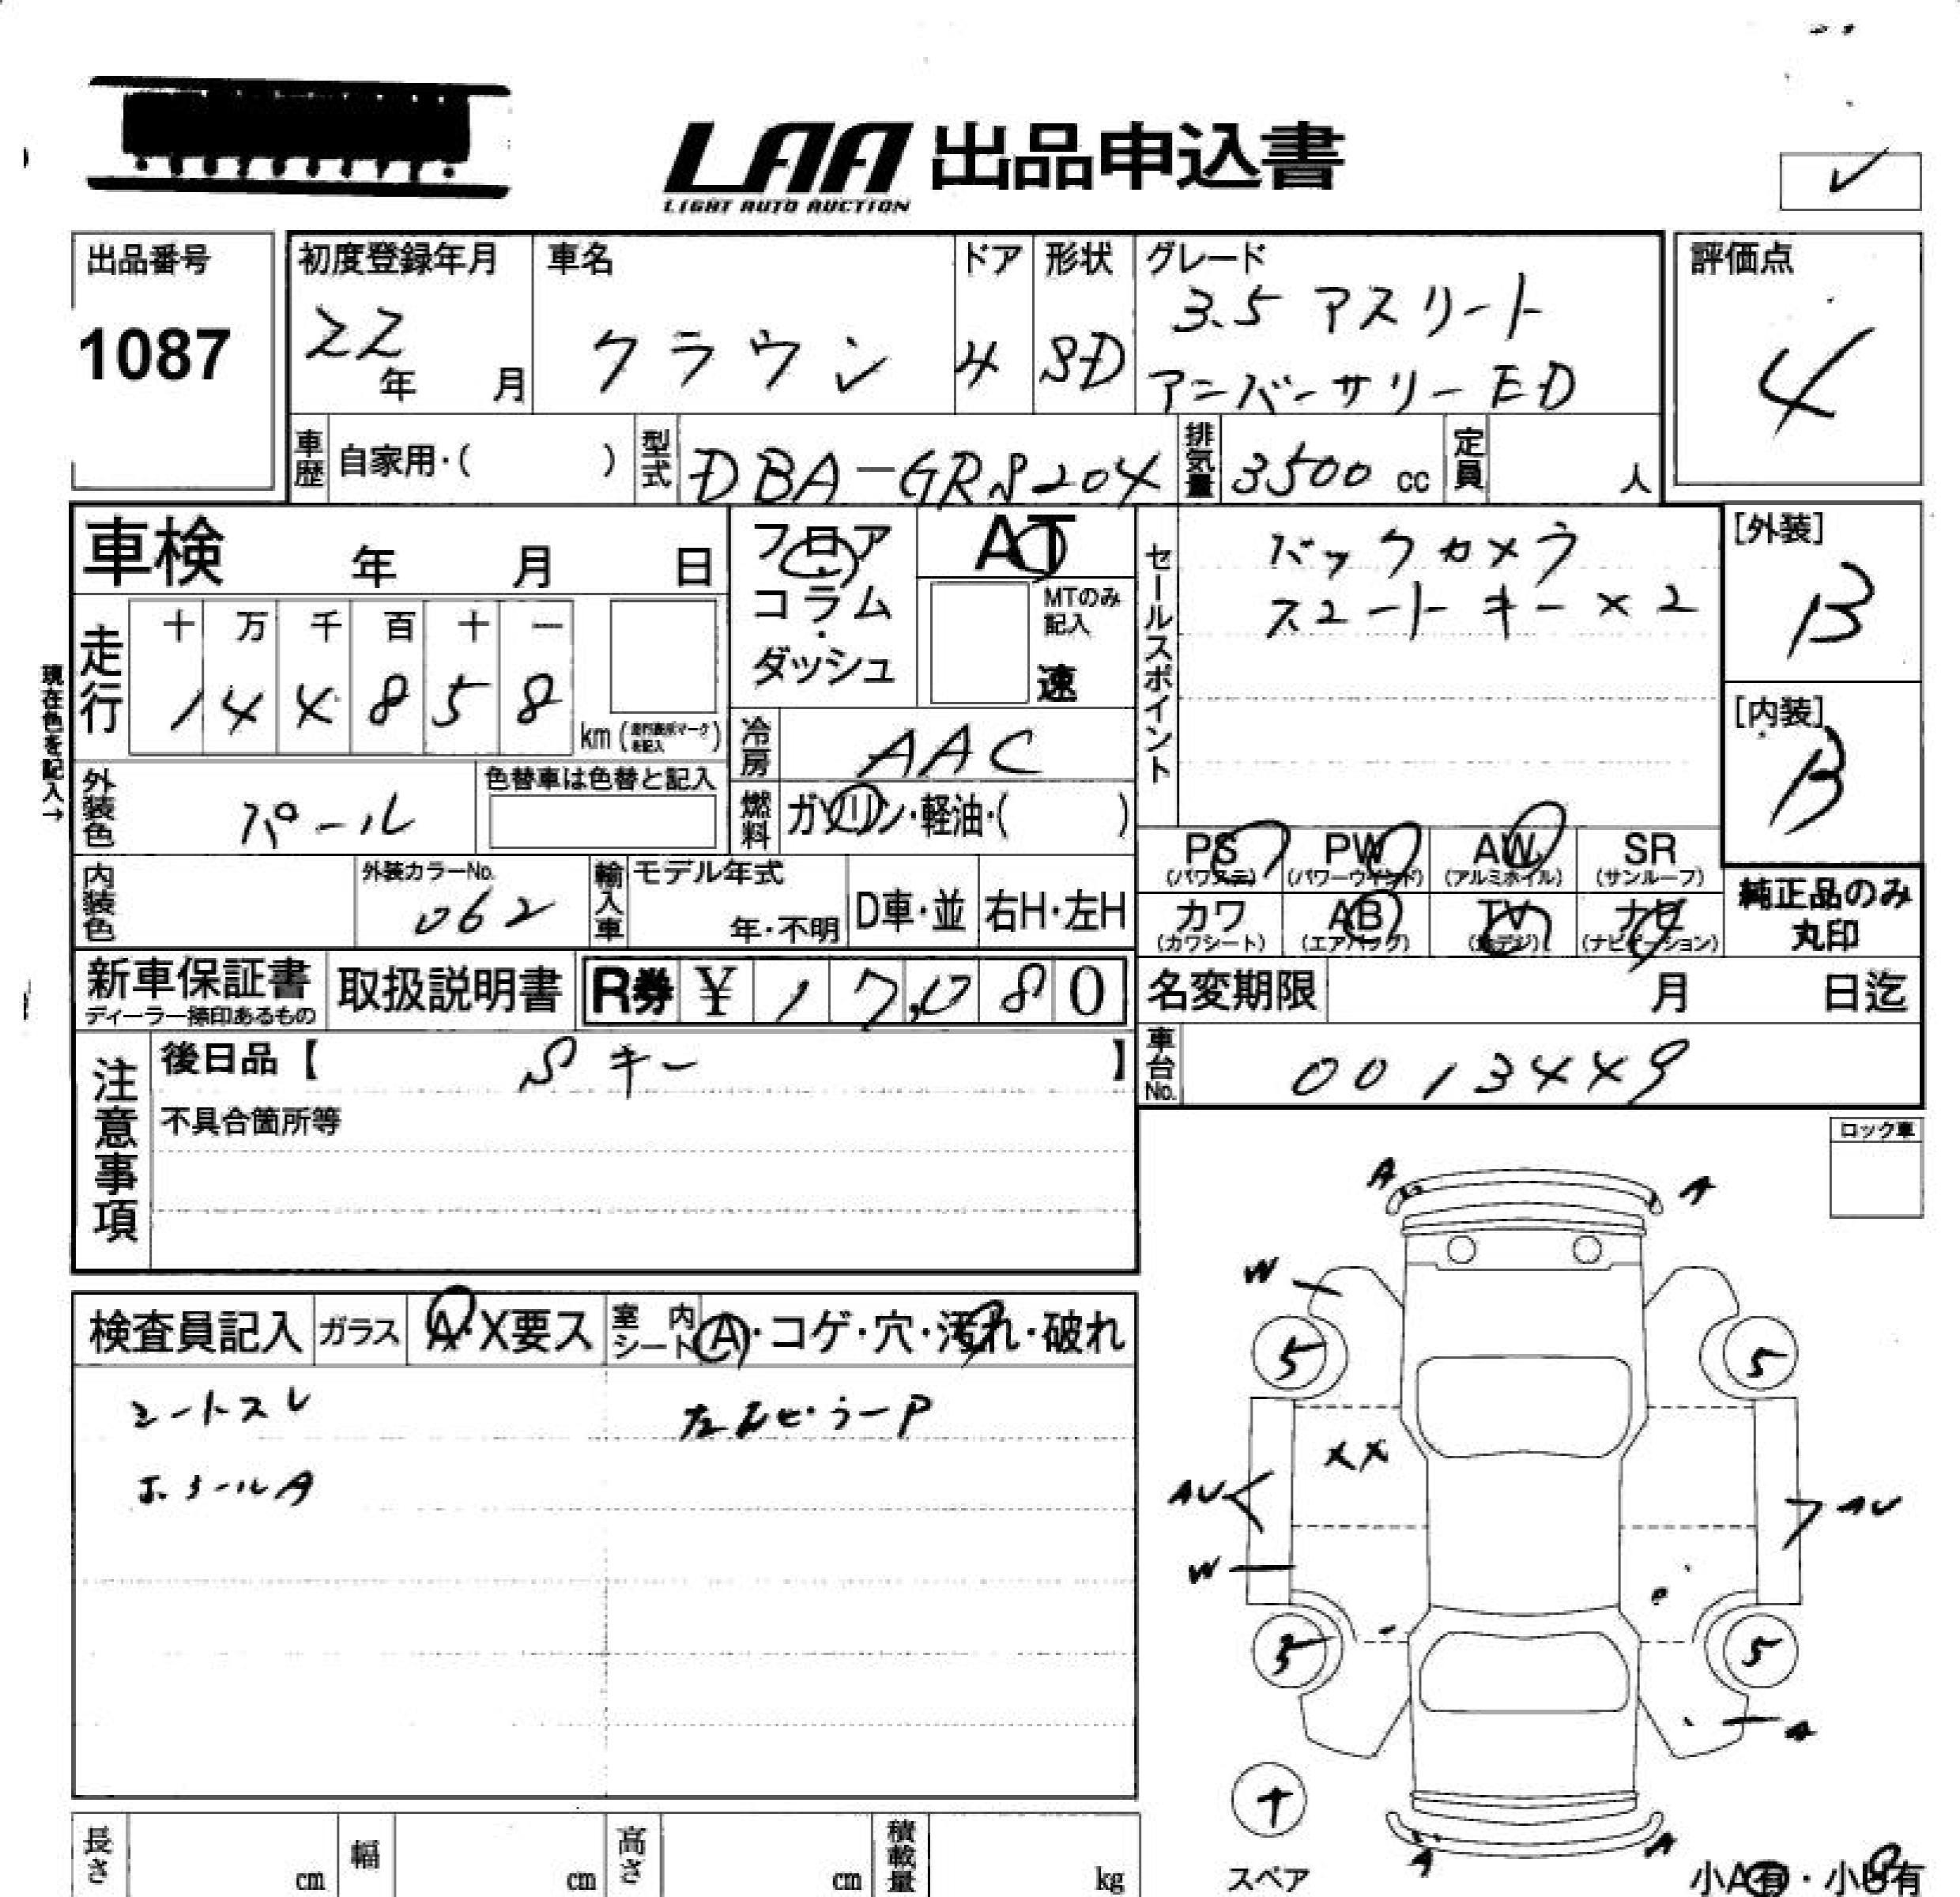 LAA 出品申込書
LIGHT AUTO AUCTION
✓
出品番号
1087
初度登録年月
22年 月
車名
クラウン
ドア
4
形状
SD
グレード
3.5 アスリート
アニバーサリーED
評価点
4
車歴 自家用・( )
型式 DBA-GRS204
排気量 3500 cc
定員 人
車検 年 月 日
フロア・コラム・ダッシュ
AT
MTのみ記入
速
セールスポイント
バックカメラ
スマートキー×2
[外装]
B
[内装]
B
現在色を記入→
走行
十 万 千 百 十 一
1 4 4 8 5 8
km
冷房 AAC
外装色 パール
色替車は色替と記入
燃料 ガソリン・軽油・( )
PS PW AW SR
(パワステ) (パワーウインド) (アルミホイル) (サンルーフ)
カワ AB TV ナビ
(カワシート) (エアバック) (地デジ) (ナビゲーション)
純正品のみ
丸印
内装色
外装カラーNo.
062
輸入車
モデル年式
年・不明
D車・並
右H・左H
新車保証書
ディーラー捺印あるもの
取扱説明書
R券 ¥ 17,080
名変期限 月 日迄
車台No. 0013449
注意事項
後日品【 Sキー 】
不具合箇所等
ロック車
検査員記入 ガラス A・X要ス 室内シート A・コゲ・穴・汚れ・破れ
シートスレ
ホイールA
A A
W
5 5
XX
AU AU
W
5
A
スペア
A A
小A有・小U有
長さ cm
幅 cm
高さ cm
積載量 kg